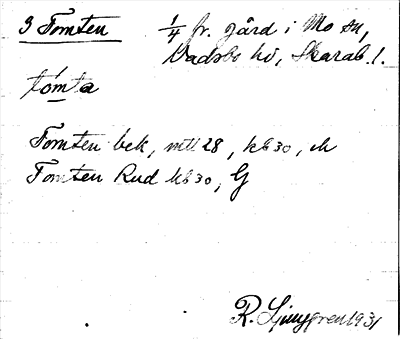 3 Tomten 1/4 fr. gård i Mo sn,
Vadsbo hd, Skarab. l.
tomta
Tomten bek, mtl 28, kb 30, ch
Tomten Rud kb 30, G
R. Ljunggren 1931